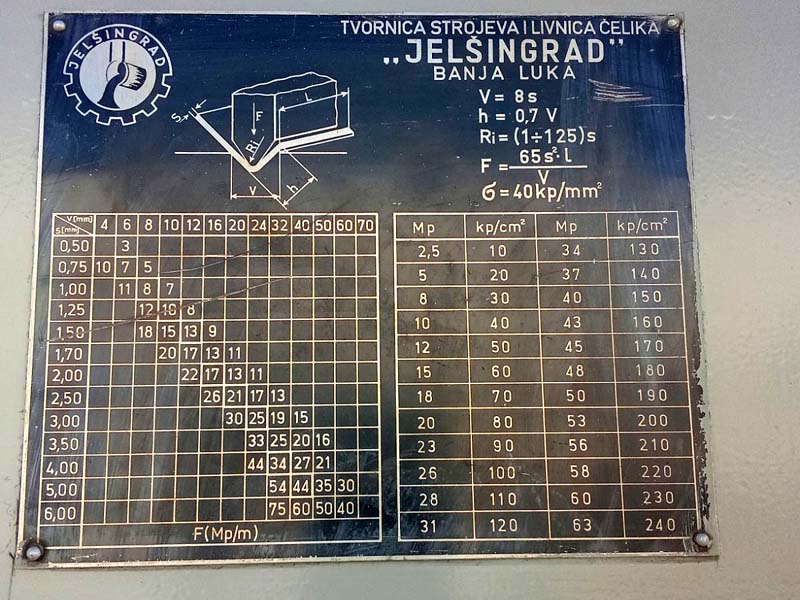 JELŠINGRAD
TVORNICA STROJEVA I LIVNICA ČELIKA
„JELŠINGRAD”
BANJA LUKA
V = 8s
h = 0,7 V
Ri = (1÷125)s
F = 65s²·L / V
б = 40kp/mm²
S F L Ri V h
V [mm] 4 6 8 10 12 16 20 24 32 40 50 60 70
S [mm]
0,50 3
0,75 10 7 5
1,00 11 8 7
1,25 12 10 8
1,50 18 15 13 9
1,70 20 17 13 11
2,00 22 17 13 11
2,50 26 21 17 13
3,00 30 25 19 15
3,50 33 25 20 16
4,00 44 34 27 21
5,00 54 44 35 30
6,00 75 60 50 40
F (Mp/m)
Mp kp/cm² Mp kp/cm²
2,5 10 34 130
5 20 37 140
8 30 40 150
10 40 43 160
12 50 45 170
15 60 48 180
18 70 50 190
20 80 53 200
23 90 56 210
26 100 58 220
28 110 60 230
31 120 63 240